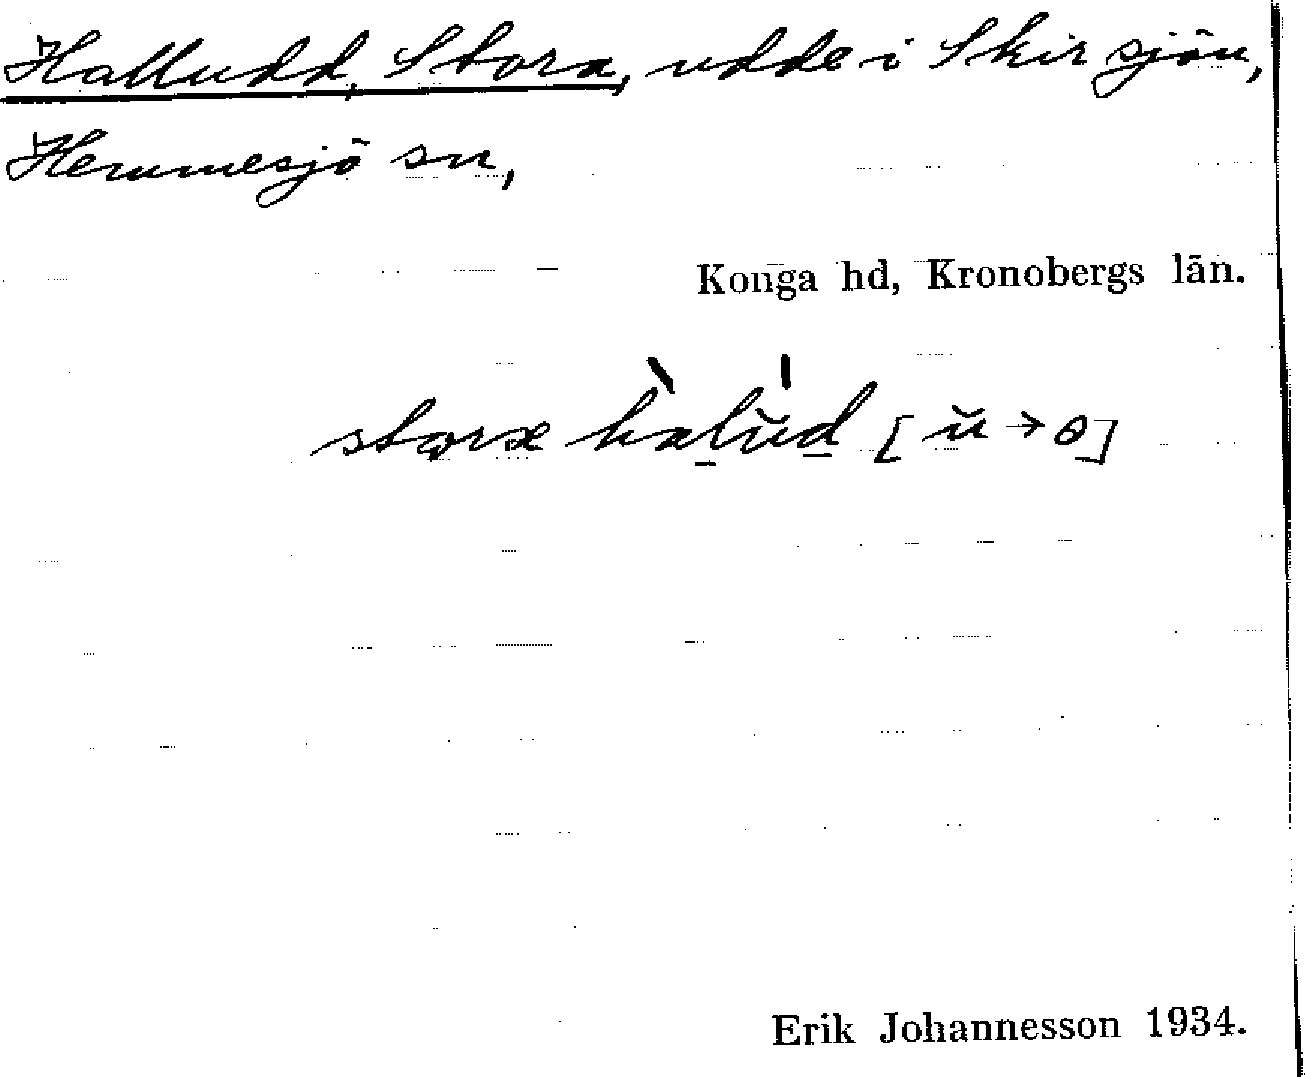 Halludd, Stora, udde i Skirsjön,
Hemmesjö sn,
Konga hd, Kronobergs län.
stora halŭd [ŭ → ɵ]
Erik Johannesson 1934.